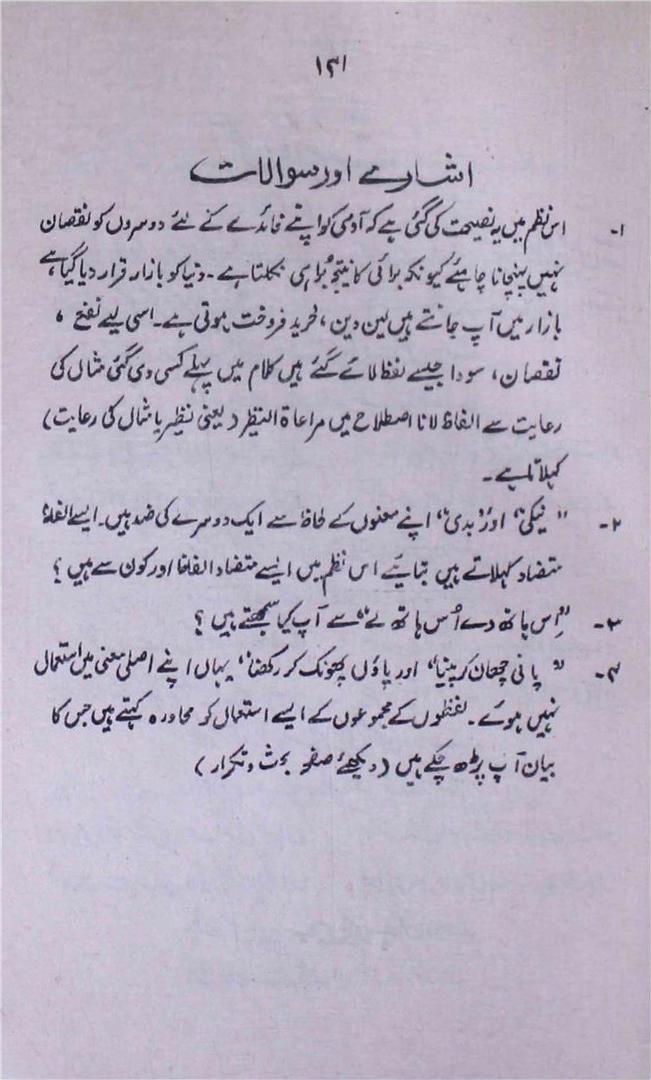 ۱۳۱
اشارے اور سوالات
۱- اس نظم میں یہ نصیحت کی گئی ہے کہ آدمی کو اپنے فائدے کے لئے دوسروں کو نقصان
نہیں پہنچانا چاہئے کیونکہ برائی کا نتیجہ بُرا ہی نکلتا ہے۔ دنیا کو بازار قرار دیا گیا ہے
بازار میں آپ جانتے ہیں لین دین، خرید فروخت ہوتی ہے۔ اسی لیے نفع،
نقصان، سودا جیسے لفظ لائے گئے ہیں کلام میں پہلے کسی دی گئی مثال کی
رعایت سے الفاظ لانا اصطلاح میں مراعاۃ النظیر (یعنی نظیر یا مثال کی رعایت)
کہلاتا ہے۔
۲- "نیکی" اور "بدی" اپنے معنوں کے لحاظ سے ایک دوسرے کی ضد ہیں۔ ایسے الفاظ
متضاد کہلاتے ہیں بتایئے اس نظم میں ایسے متضاد الفاظ اور کون سے ہیں؟
۳- "اِس ہاتھ دے اُس ہاتھ لے" سے آپ کیا سمجھتے ہیں؟
۴- "پانی چھان کر پینا" اور پاؤں پھونک کر رکھنا" یہاں اپنے اصلی معنی میں استعمال
نہیں ہوئے۔ لفظوں کے مجموعوں کے ایسے استعمال کو محاورہ کہتے ہیں جس کا
بیان آپ پڑھ چکے ہیں (دیکھئے صفحہ بحث و تکرار)